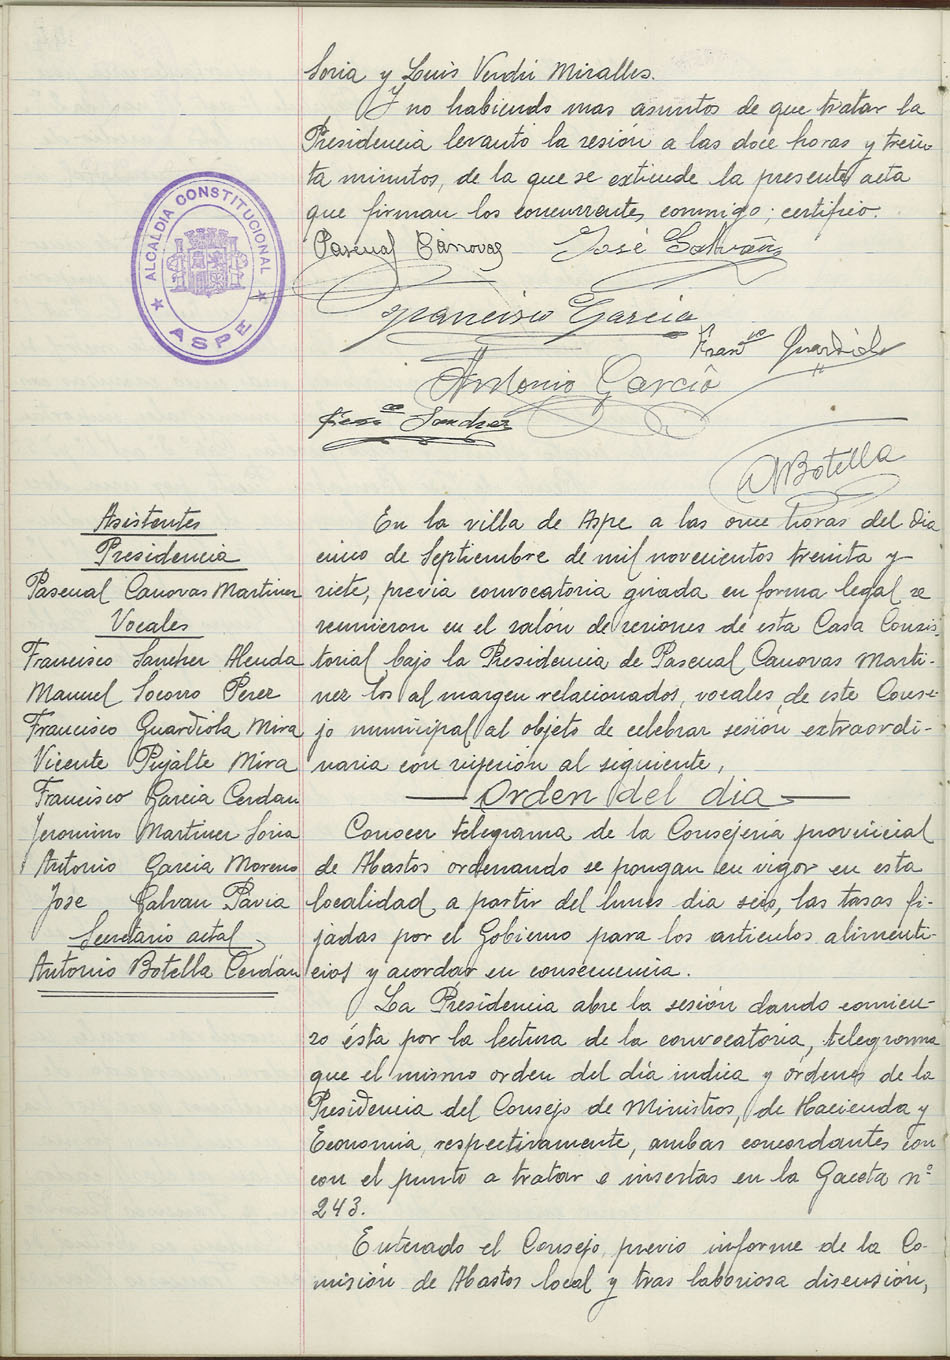 Soria y Luis Verdú Miralles.
Y no habiendo mas asuntos de que tratar la
Presidencia levantó la sesión a las doce horas y trein-
ta minutos, de la que se extiende la presente acta
que firman los concurrentes conmigo; certifico.
ALCALDIA CONSTITUCIONAL
ASPE
Pascual Cánovas José Galvañ
Francisco García
Franco Guardiola
Antonio García
Sanchez
ABotella
Asistentes
Presidencia
Pascual Canovas Martinez
Vocales
Francisco Sanchez Alenda
Manuel Socorro Perez
Francisco Guardiola Mira
Vicente Pujalte Mira
Francisco Garcia Cerdan
Jeronimo Martinez Soria
Antonio Garcia Moreno
Jose Galvan Pavia
Secretario actal
Antonio Botella Cerdán
En la villa de Aspe a las once horas del dia
cinco de Septiembre de mil novecientos treinta y
siete, previa convocatoria girada en forma legal se
reunieron en el salón de sesiones de esta Casa Consis-
torial bajo la Presidencia de Pascual Canovas Marti-
nez los al margen relacionados, vocales de este Conse-
jo municipal al objeto de celebrar sesión extraordi-
naria con sujeción al siguiente,
Orden del dia
Conocer telegrama de la Consejeria provincial
de Abastos ordenando se pongan en vigor en esta
localidad a partir del lunes dia seis, las tasas fi-
jadas por el Gobierno para los articulos alimenti-
cios y acordar en consecuencia.
La Presidencia abre la sesión dando comien-
zo ésta por la lectura de la convocatoria, telegrama
que el mismo orden del día indica y órdenes de la
Presidencia del Consejo de Ministros, de Hacienda y
Economia, respectivamente, ambas concordantes con
con el punto a tratar e insertas en la Gaceta nº
243.
Enterado el Consejo, previo informe de la Co-
misión de Abastos local y tras laboriosa discusión,